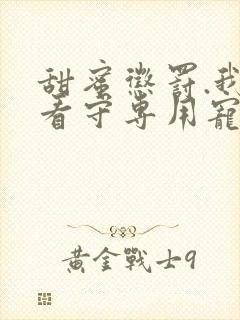 甜蜜懲罰.我
看守專用寵
黃金戰士9